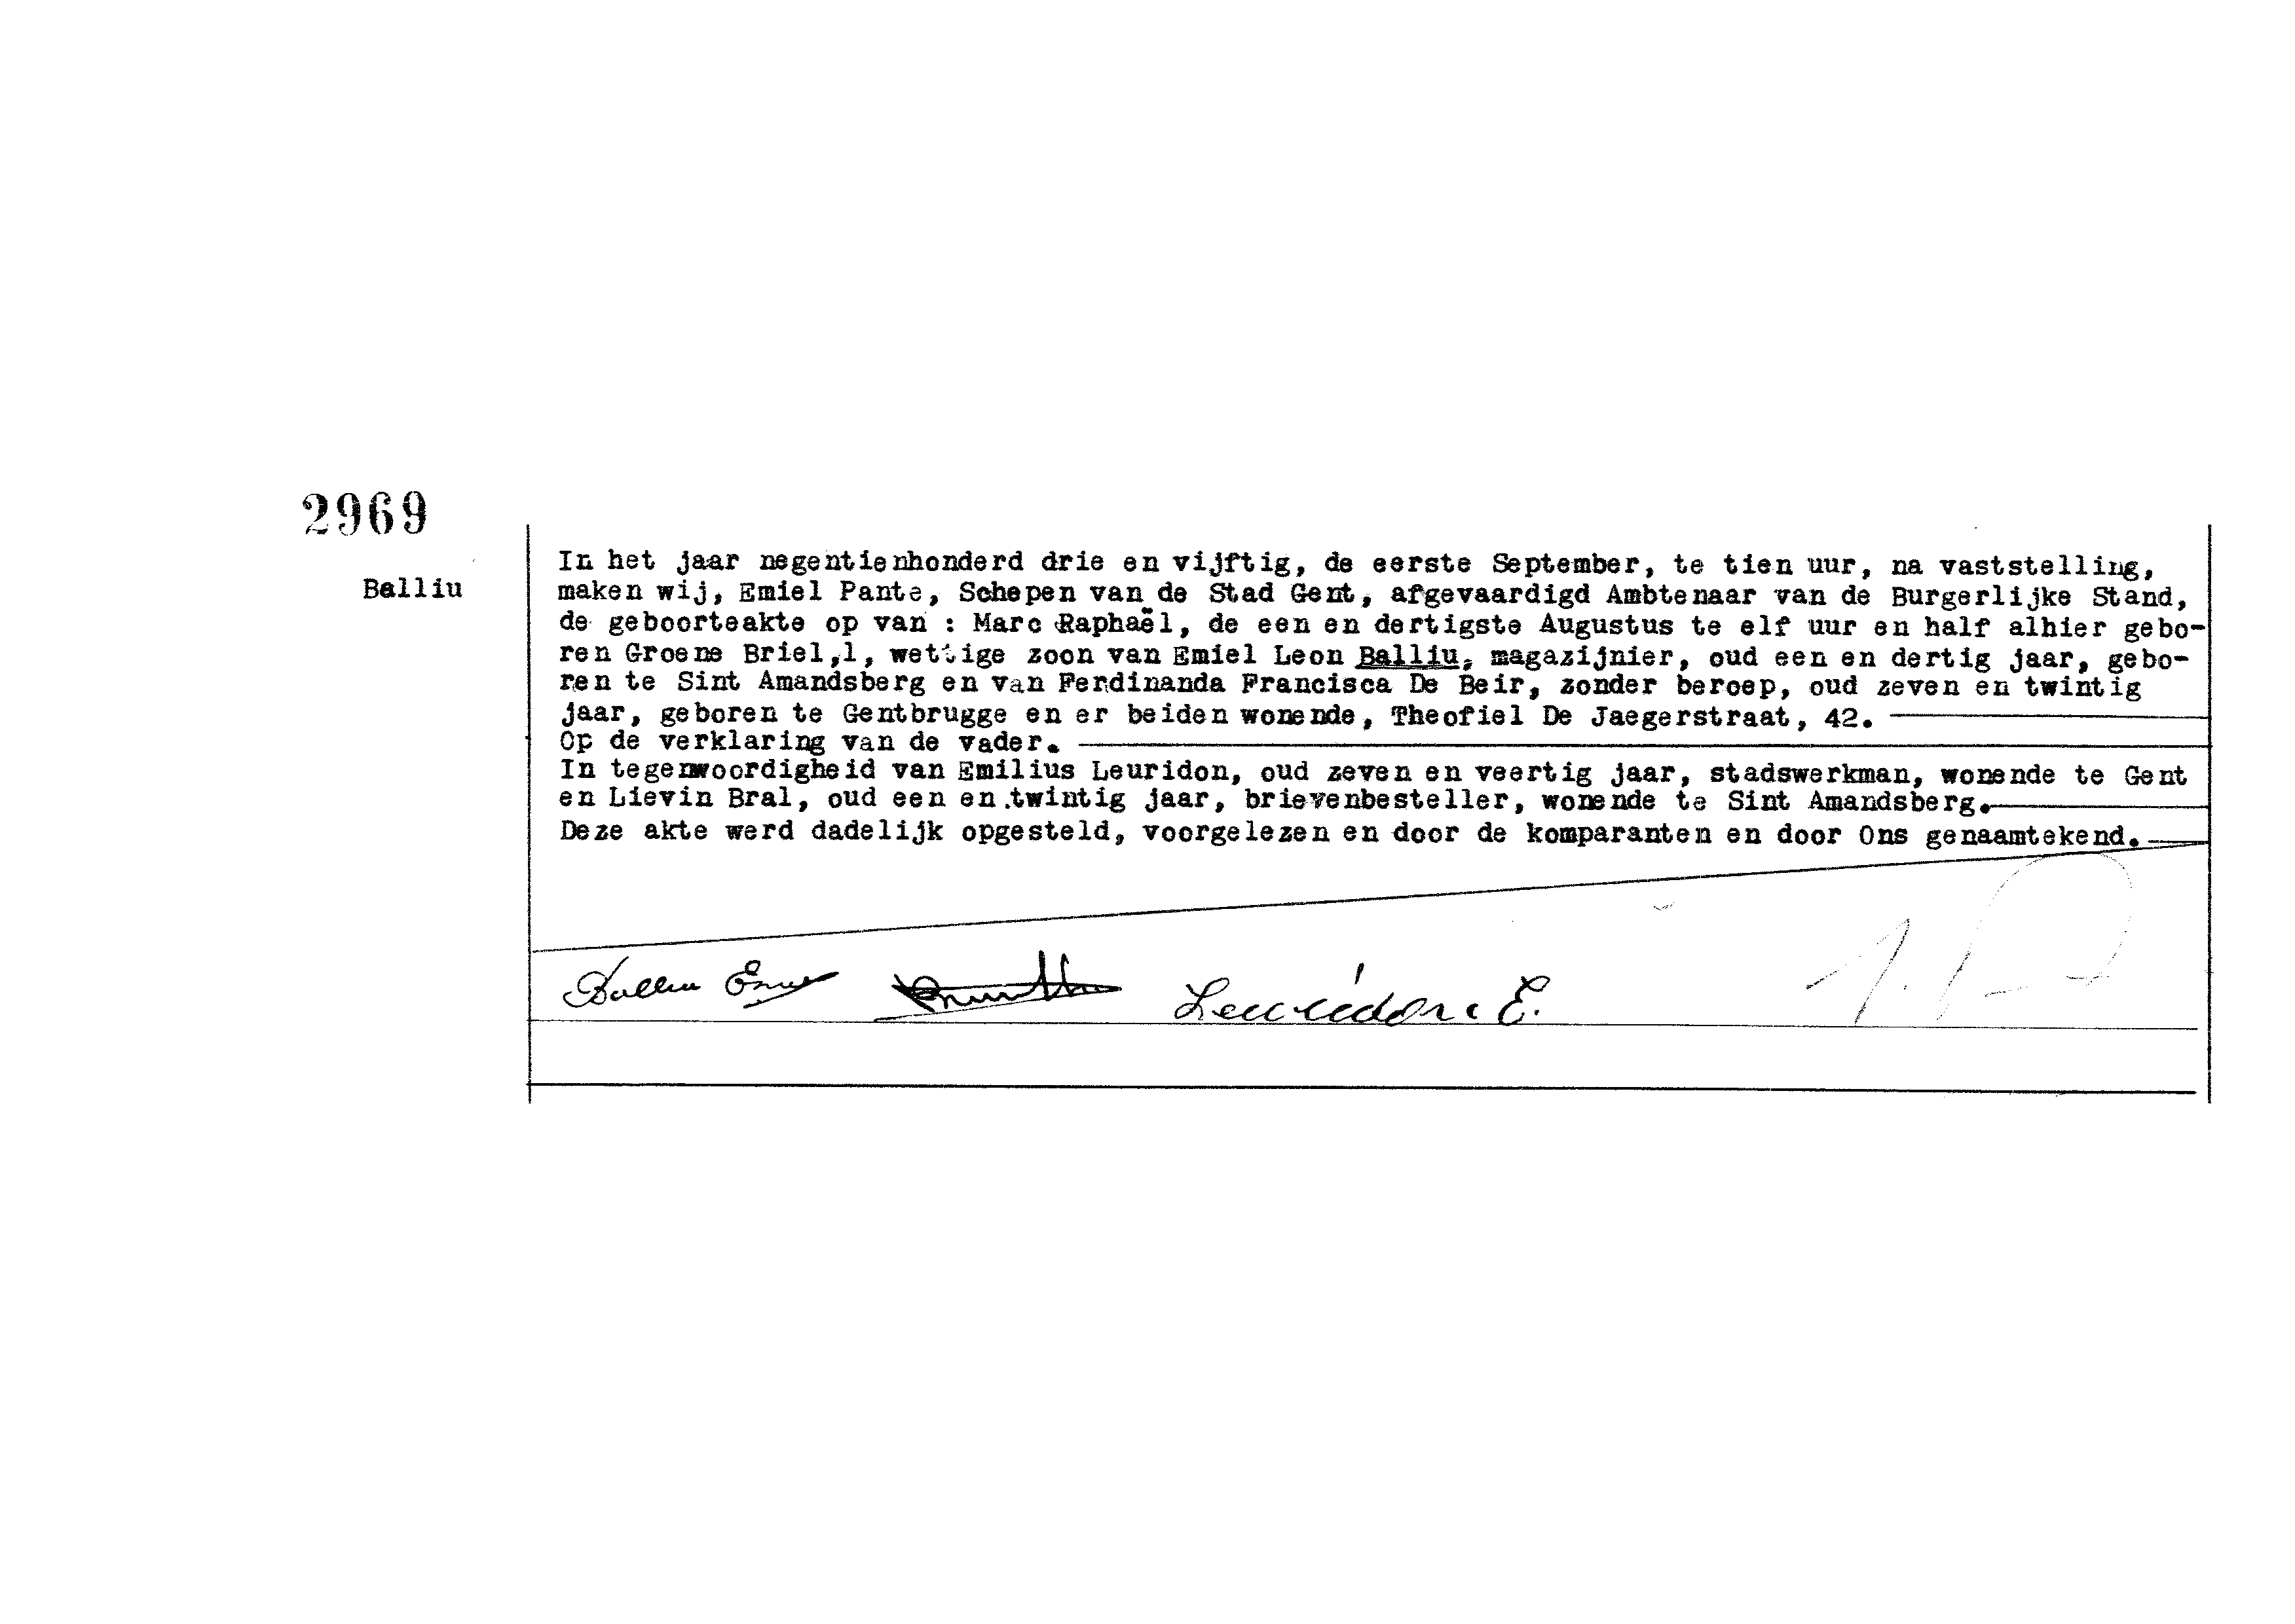 2969
Balliu
In het jaar negentienhonderd drie en vijftig, de eerste September, te tien uur, na vaststelling,
maken wij, Emiel Pante, Schepen van de Stad Gent, afgevaardigd Ambtenaar van de Burgerlijke Stand,
de geboorteakte op van : Marc Raphaël, de een en dertigste Augustus te elf uur en half alhier gebo-
ren Groene Briel,1, wettige zoon van Emiel Leon Balliu, magazijnier, oud een en dertig jaar, gebo-
ren te Sint Amandsberg en van Ferdinanda Francisca De Beir, zonder beroep, oud zeven en twintig
jaar, geboren te Gentbrugge en er beiden wonende, Theofiel De Jaegerstraat, 42.
Op de verklaring van de vader.
In tegenwoordigheid van Emilius Leuridon, oud zeven en veertig jaar, stadswerkman, wonende te Gent
en Lievin Bral, oud een en twintig jaar, brievenbesteller, wonende te Sint Amandsberg.
Deze akte werd dadelijk opgesteld, voorgelezen en door de komparanten en door Ons genaamtekend.
Balliu Emiel Leuridon E.